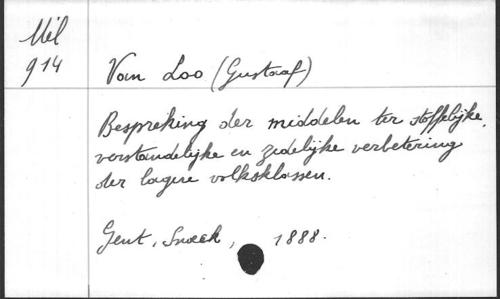 Mel
914
Van Loo (Gustaaf)
Bespreking der middelen ter stoffelijke,
verstandelijke en zedelijke verbetering
der lagere volksklassen.
Gent, Snoeck, 1888.